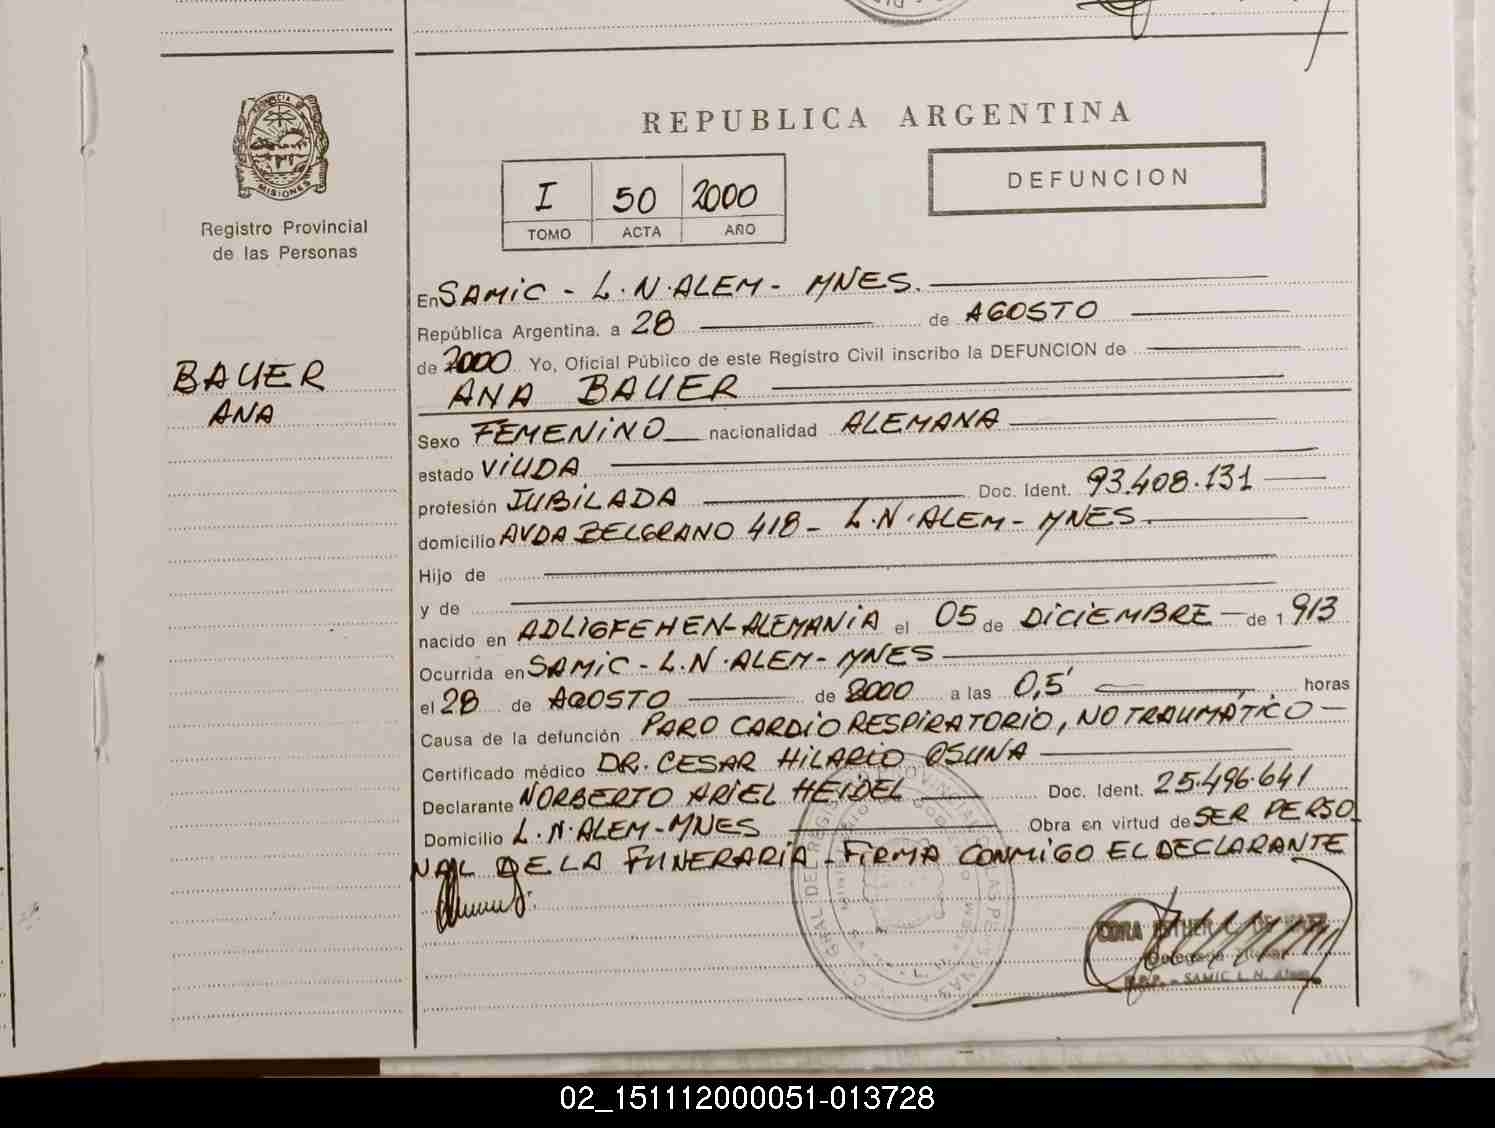 PROVINCIA D
MISIONES
Registro Provincial
de las Personas
BAUER
ANA
REPUBLICA ARGENTINA
I 50 2000
TOMO ACTA AÑO
DEFUNCION
En SAMiC - L.N.ALEM - MNES.
República Argentina. a 28 de AGOSTO
de 2000 Yo, Oficial Público de este Registro Civil inscribo la DEFUNCION de
ANA BAUER
Sexo FEMENiNO nacionalidad ALEMANA
estado ViUDA
profesión JUBiLADA Doc. Ident. 93.408.131
domicilio AVDA BELGRANO 418 - L.N.ALEM - MNES.
Hijo de
y de
nacido en ADLIGFEHEN-ALEMANiA el 05 de DiCiEMBRE de 1913
Ocurrida en SAMiC - L.N.ALEM - MNES
el 28 de AGOSTO de 2000 a las 0,5' horas
Causa de la defunción PARO CARDiO RESPiRATORIO, NO TRAUMÁTiCO
Certificado médico DR. CESAR HiLARiO OSUNA
Declarante NORBERTO ARiEL HEiDEL Doc. Ident. 25.496.641
Domicilio L.N.ALEM-MNES Obra en virtud de SER PERSO
NAL DE LA FUNERARiA - FiRMA CONMiGO EL DECLARANTE
SAMIC L. N. Alem
02_151112000051-013728